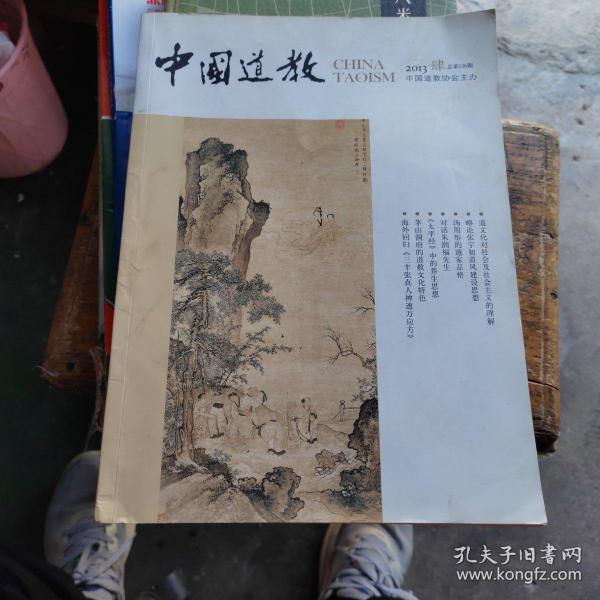 中國道教
CHINA
TAOISM
2013 肆 总第136期
中国道教协会主办
道文化对社会及社会主义的理解
略论张宇初道风建设思想
汤用彤的道家品格
对话朱润福先生
《太平经》中的养生思想
茅山洞府的道教文化特色
海外回归《三丰张真人神速万应方》
孔夫子旧书网
www.kongfz.com